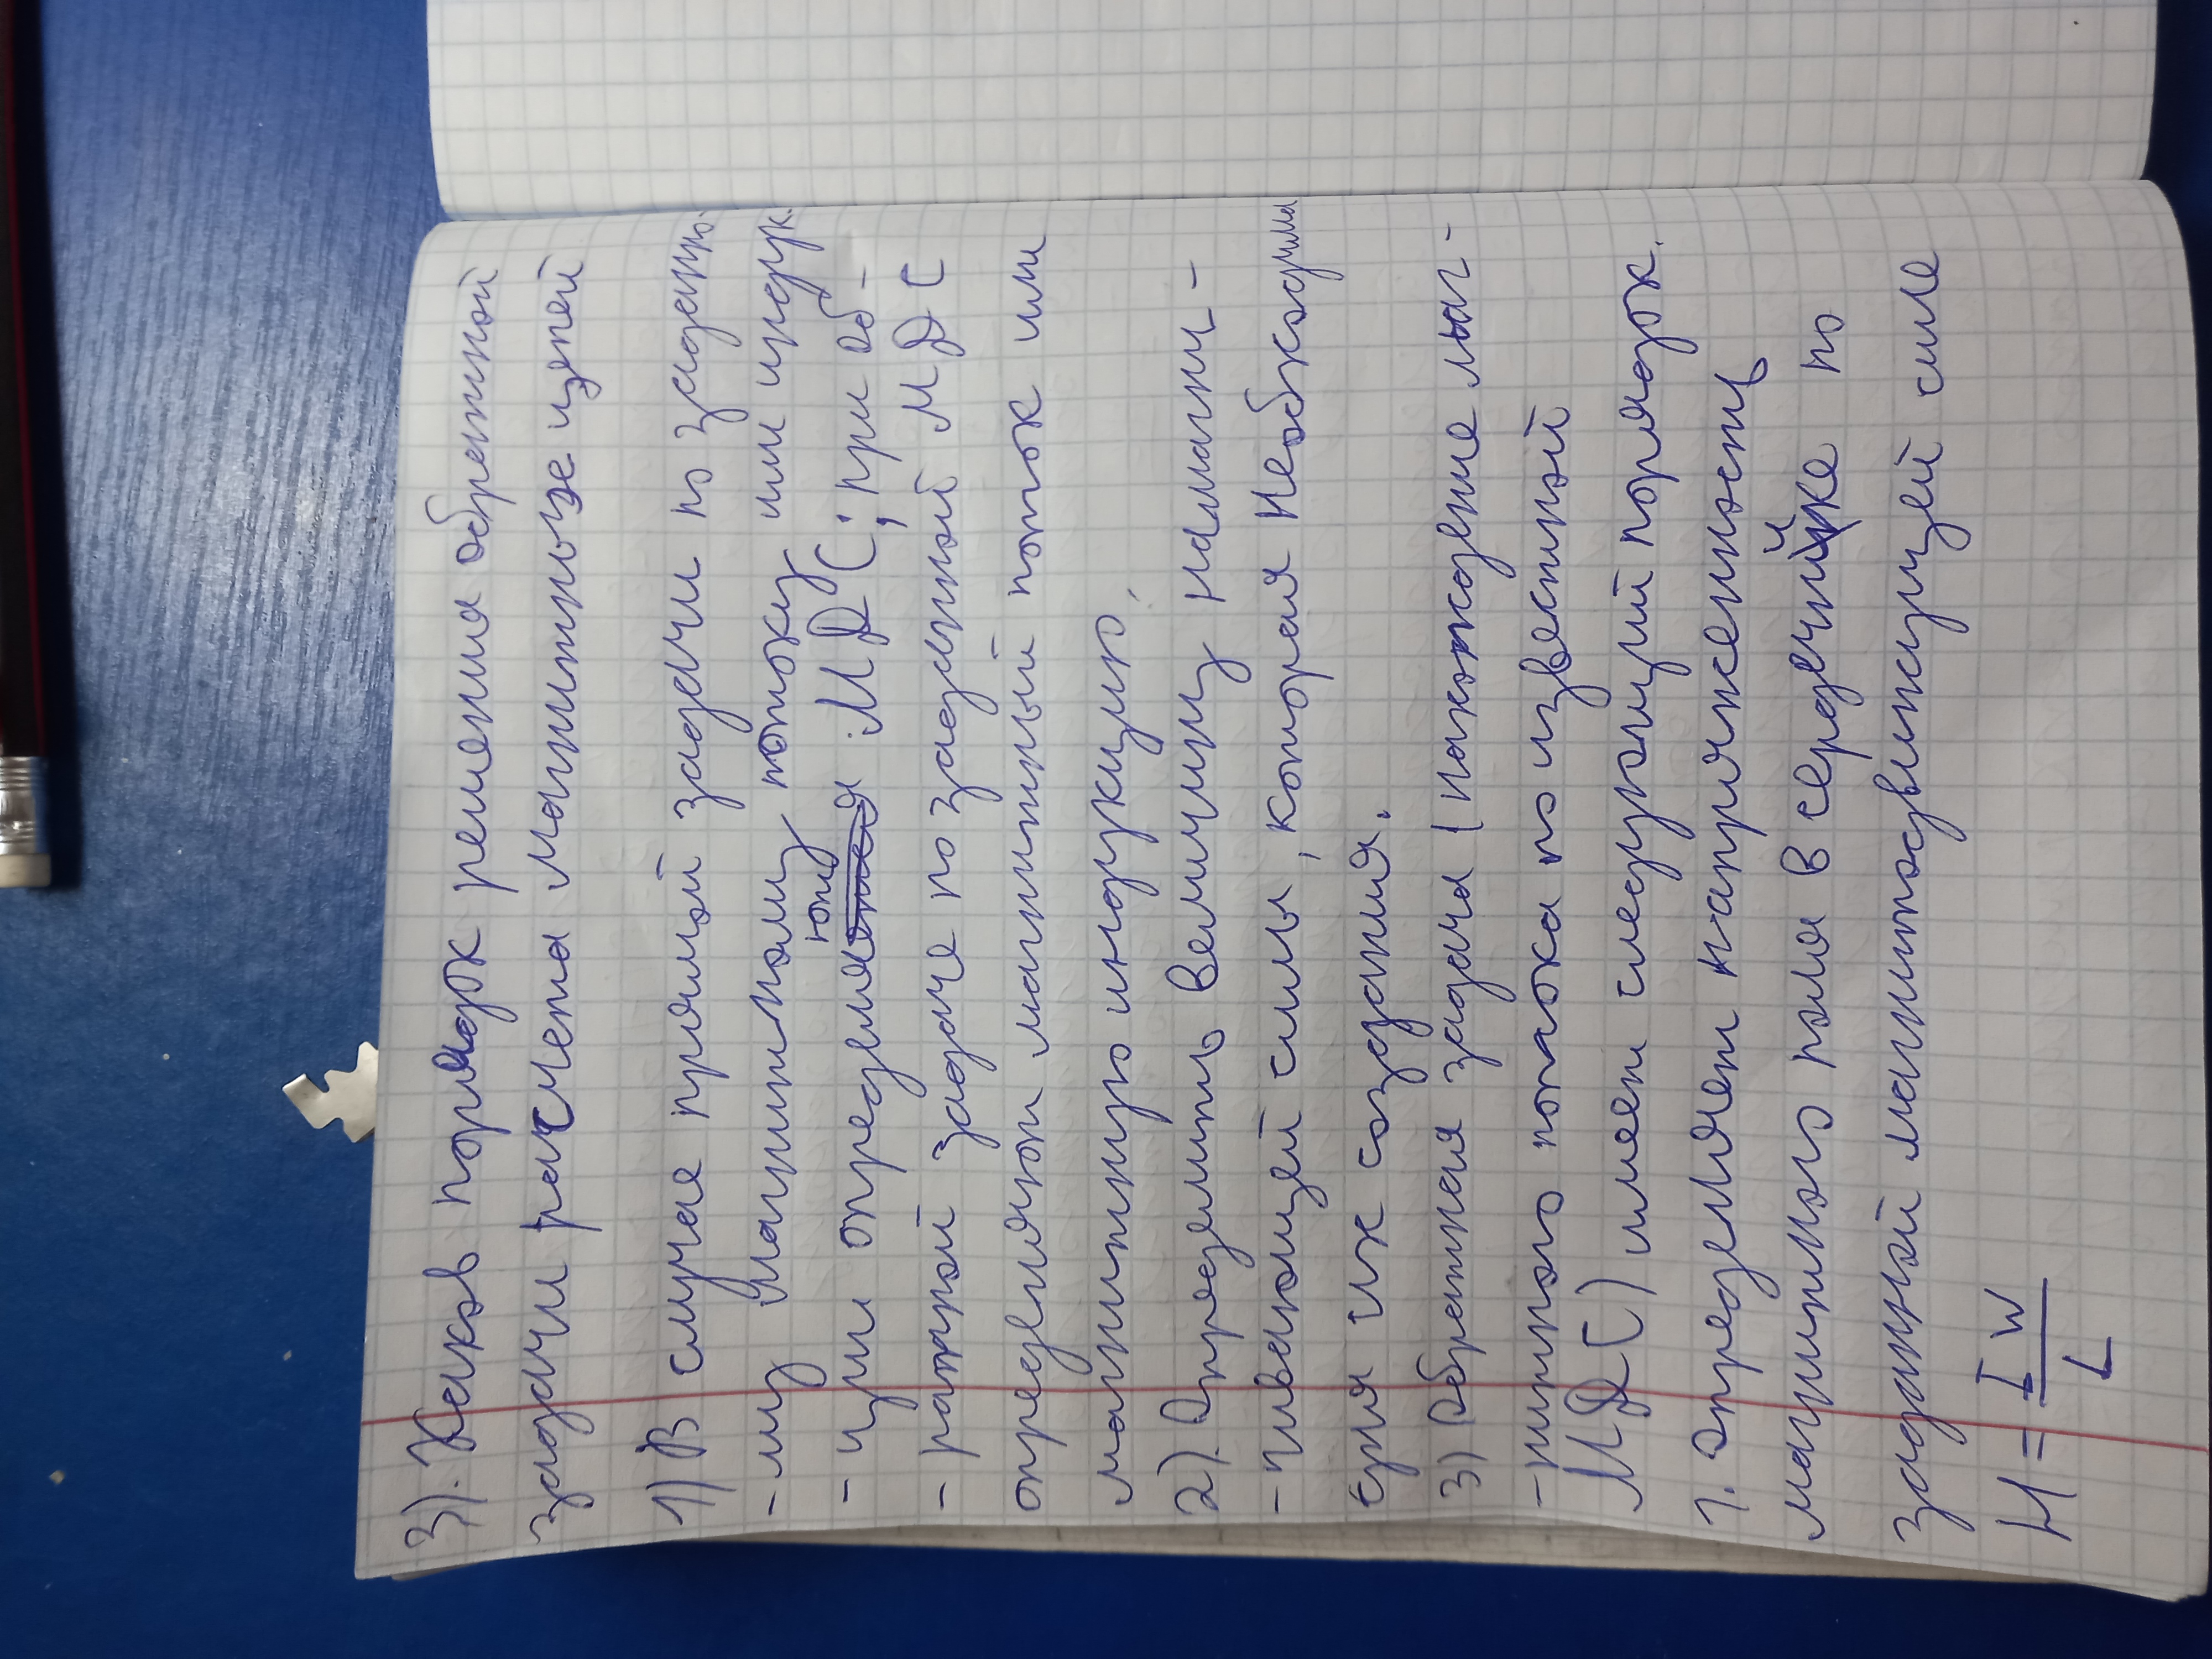 3). Каков порядок решения обратной
задачи расчета магнитные цепей
1) В случае прямой задачи по заданно-
-му магнитному потоку или индук-
-ции определяют МДС; при об-
-ратной задаче по заданной МДС
определяют магнитный поток или
магнитную индукцию.
2). Определить величину намагни-
-чивающей силы, которая необходима
для их создания.
3) Обратная задача (нахождение маг-
-нитного потока по известной
МДС) имеет следующий порядок.
1. Определяет напряженность
магнитного поля в сердечнике по
заданной магнитодвижущей силе
H = IW/L